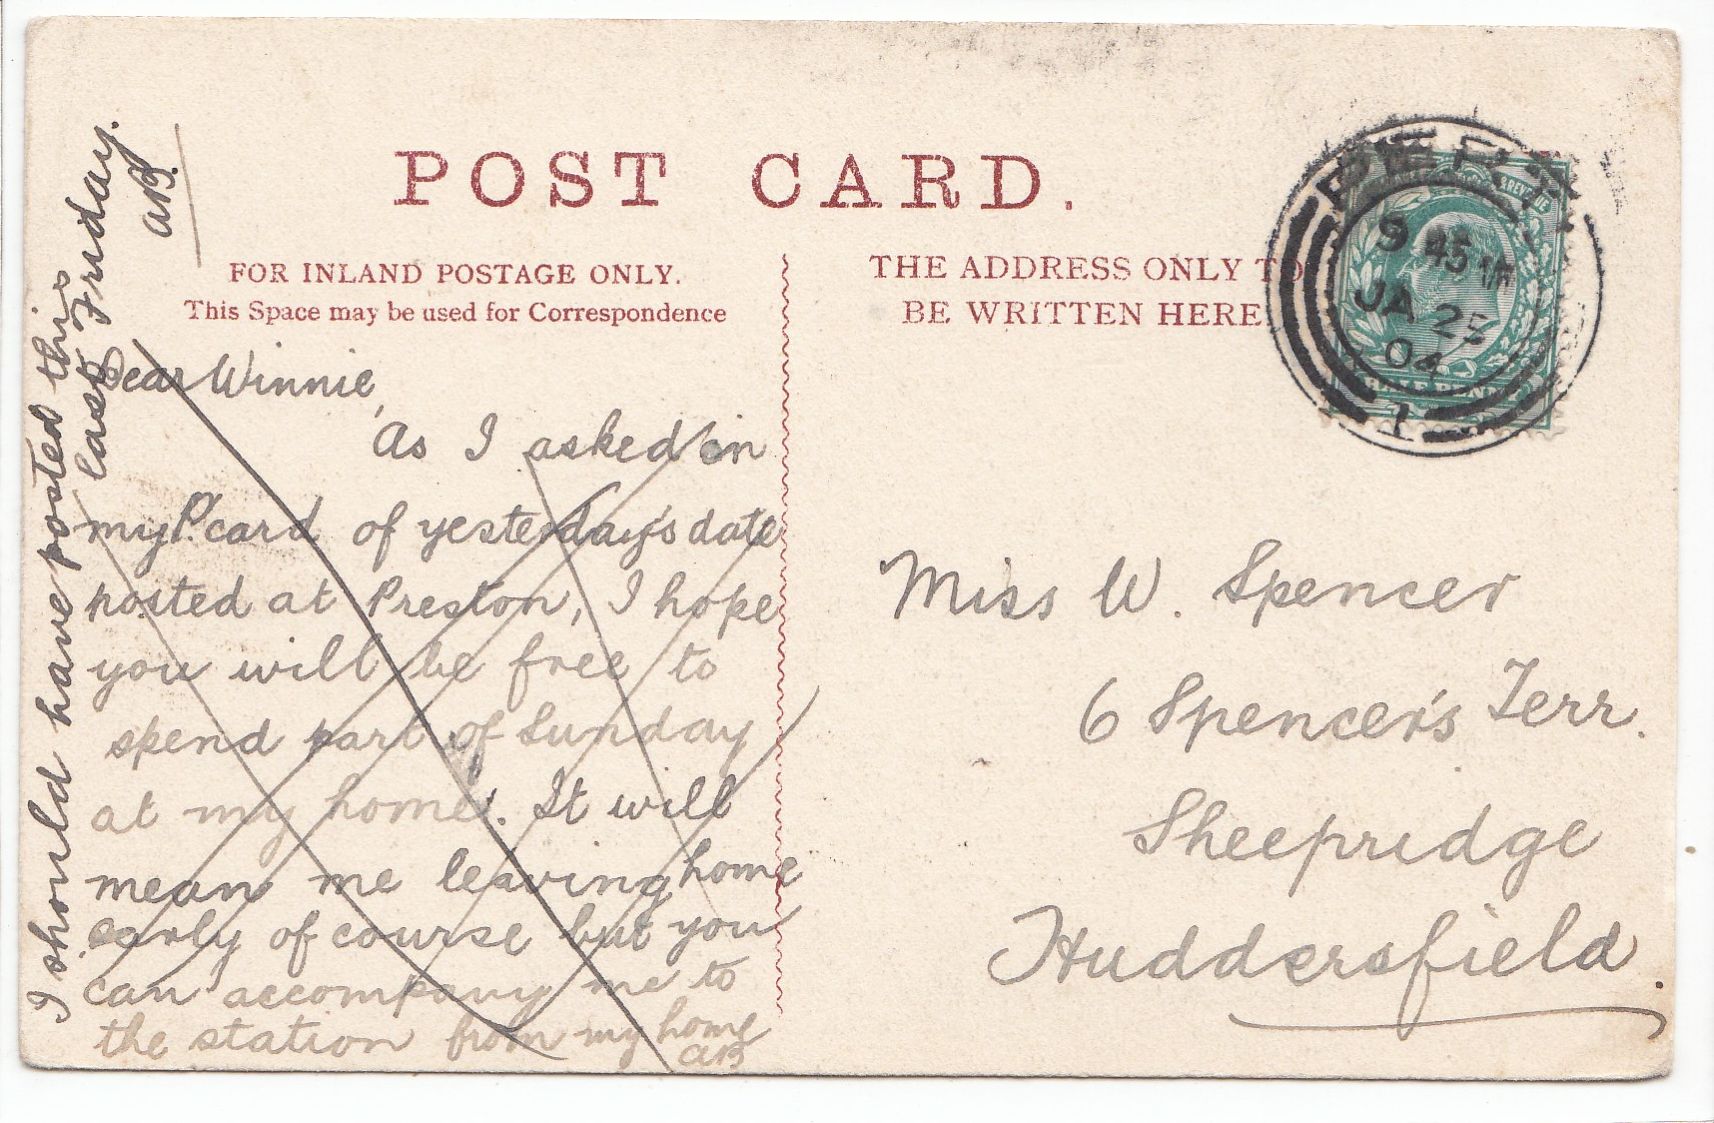 POST CARD.
FOR INLAND POSTAGE ONLY.
This Space may be used for Correspondence
THE ADDRESS ONLY TO
BE WRITTEN HERE.
Dear Winnie,
As I asked in
my P.card of yesterday's date
posted at Preston, I hope
you will be free to
spend part of Sunday
at my home. It will
mean me leaving home
early of course but you
can accompany me to
the station from my home
AB
I should have posted this
last Friday.
AB.
Miss W. Spencer
6 Spencer's Terr.
Sheepridge
Huddersfield.
9 45
JA 25
04
1
HALF PENNY